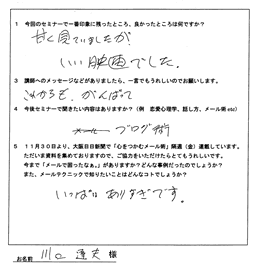 1 今回のセミナーで一番印象に残ったところ、良かったところは何ですか?
甘く見ていましたが、
いい映画でした。
3 講師へのメッセージなどがありましたら、一言でもうれしいのでお願いします。
これからも、がんばって
4 今後セミナーで聞きたい内容はありますか?(例 恋愛心理学、話し方、メール術etc)
ブログ術
5 11月30日より、大阪日日新聞で「心をつかむメール術」隔週(金)連載しています。
ただいま資料を集めておりますので、ご協力をいただけたらとてもうれしいです。
今まで「メールで困ったなぁ。」がありますか?どんな事例だったのでしょうか?
また、メールテクニックで知りたいことはどんなコトでしょうか?
いっぱいありすぎです。
お名前 川口 達夫 様